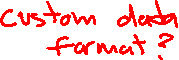 custom data
format?